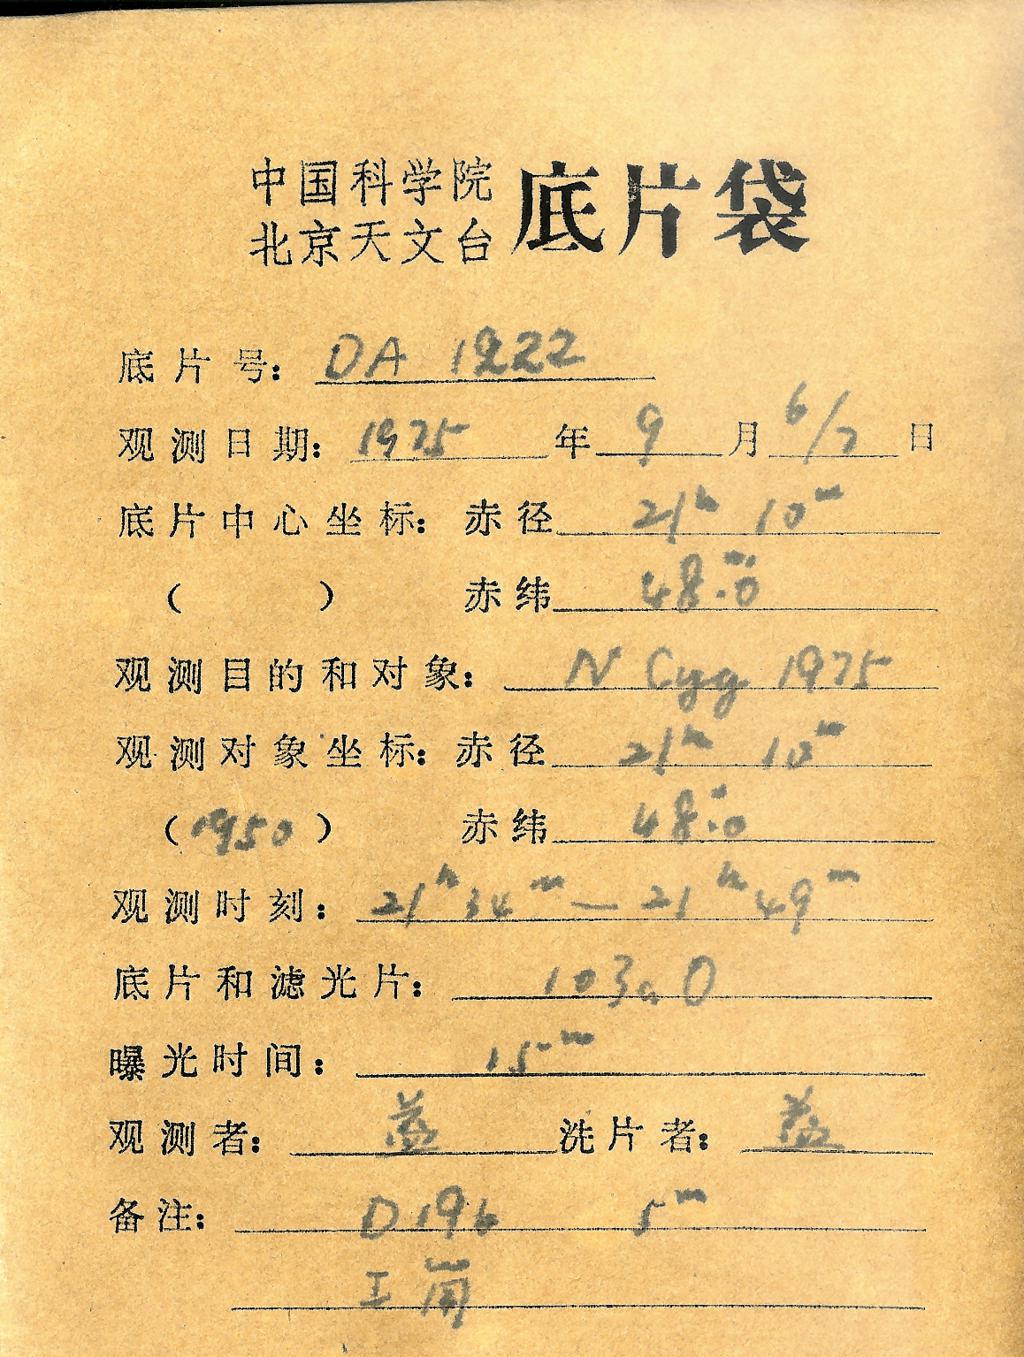 中国科学院
北京天文台
底片袋
底片号: DA 1222
观测日期: 1975年9月6/7日
底片中心坐标: 赤径 21h 10m
( ) 赤纬 48.0
观测目的和对象: N Cyg 1975
观测对象坐标: 赤径 21h 10m
(1950) 赤纬 48.0
观测时刻: 21h 34m — 21h 49m
底片和滤光片: 103aO
曝光时间: 15m
观测者: 益 洗片者: 益
备注: D196 5m